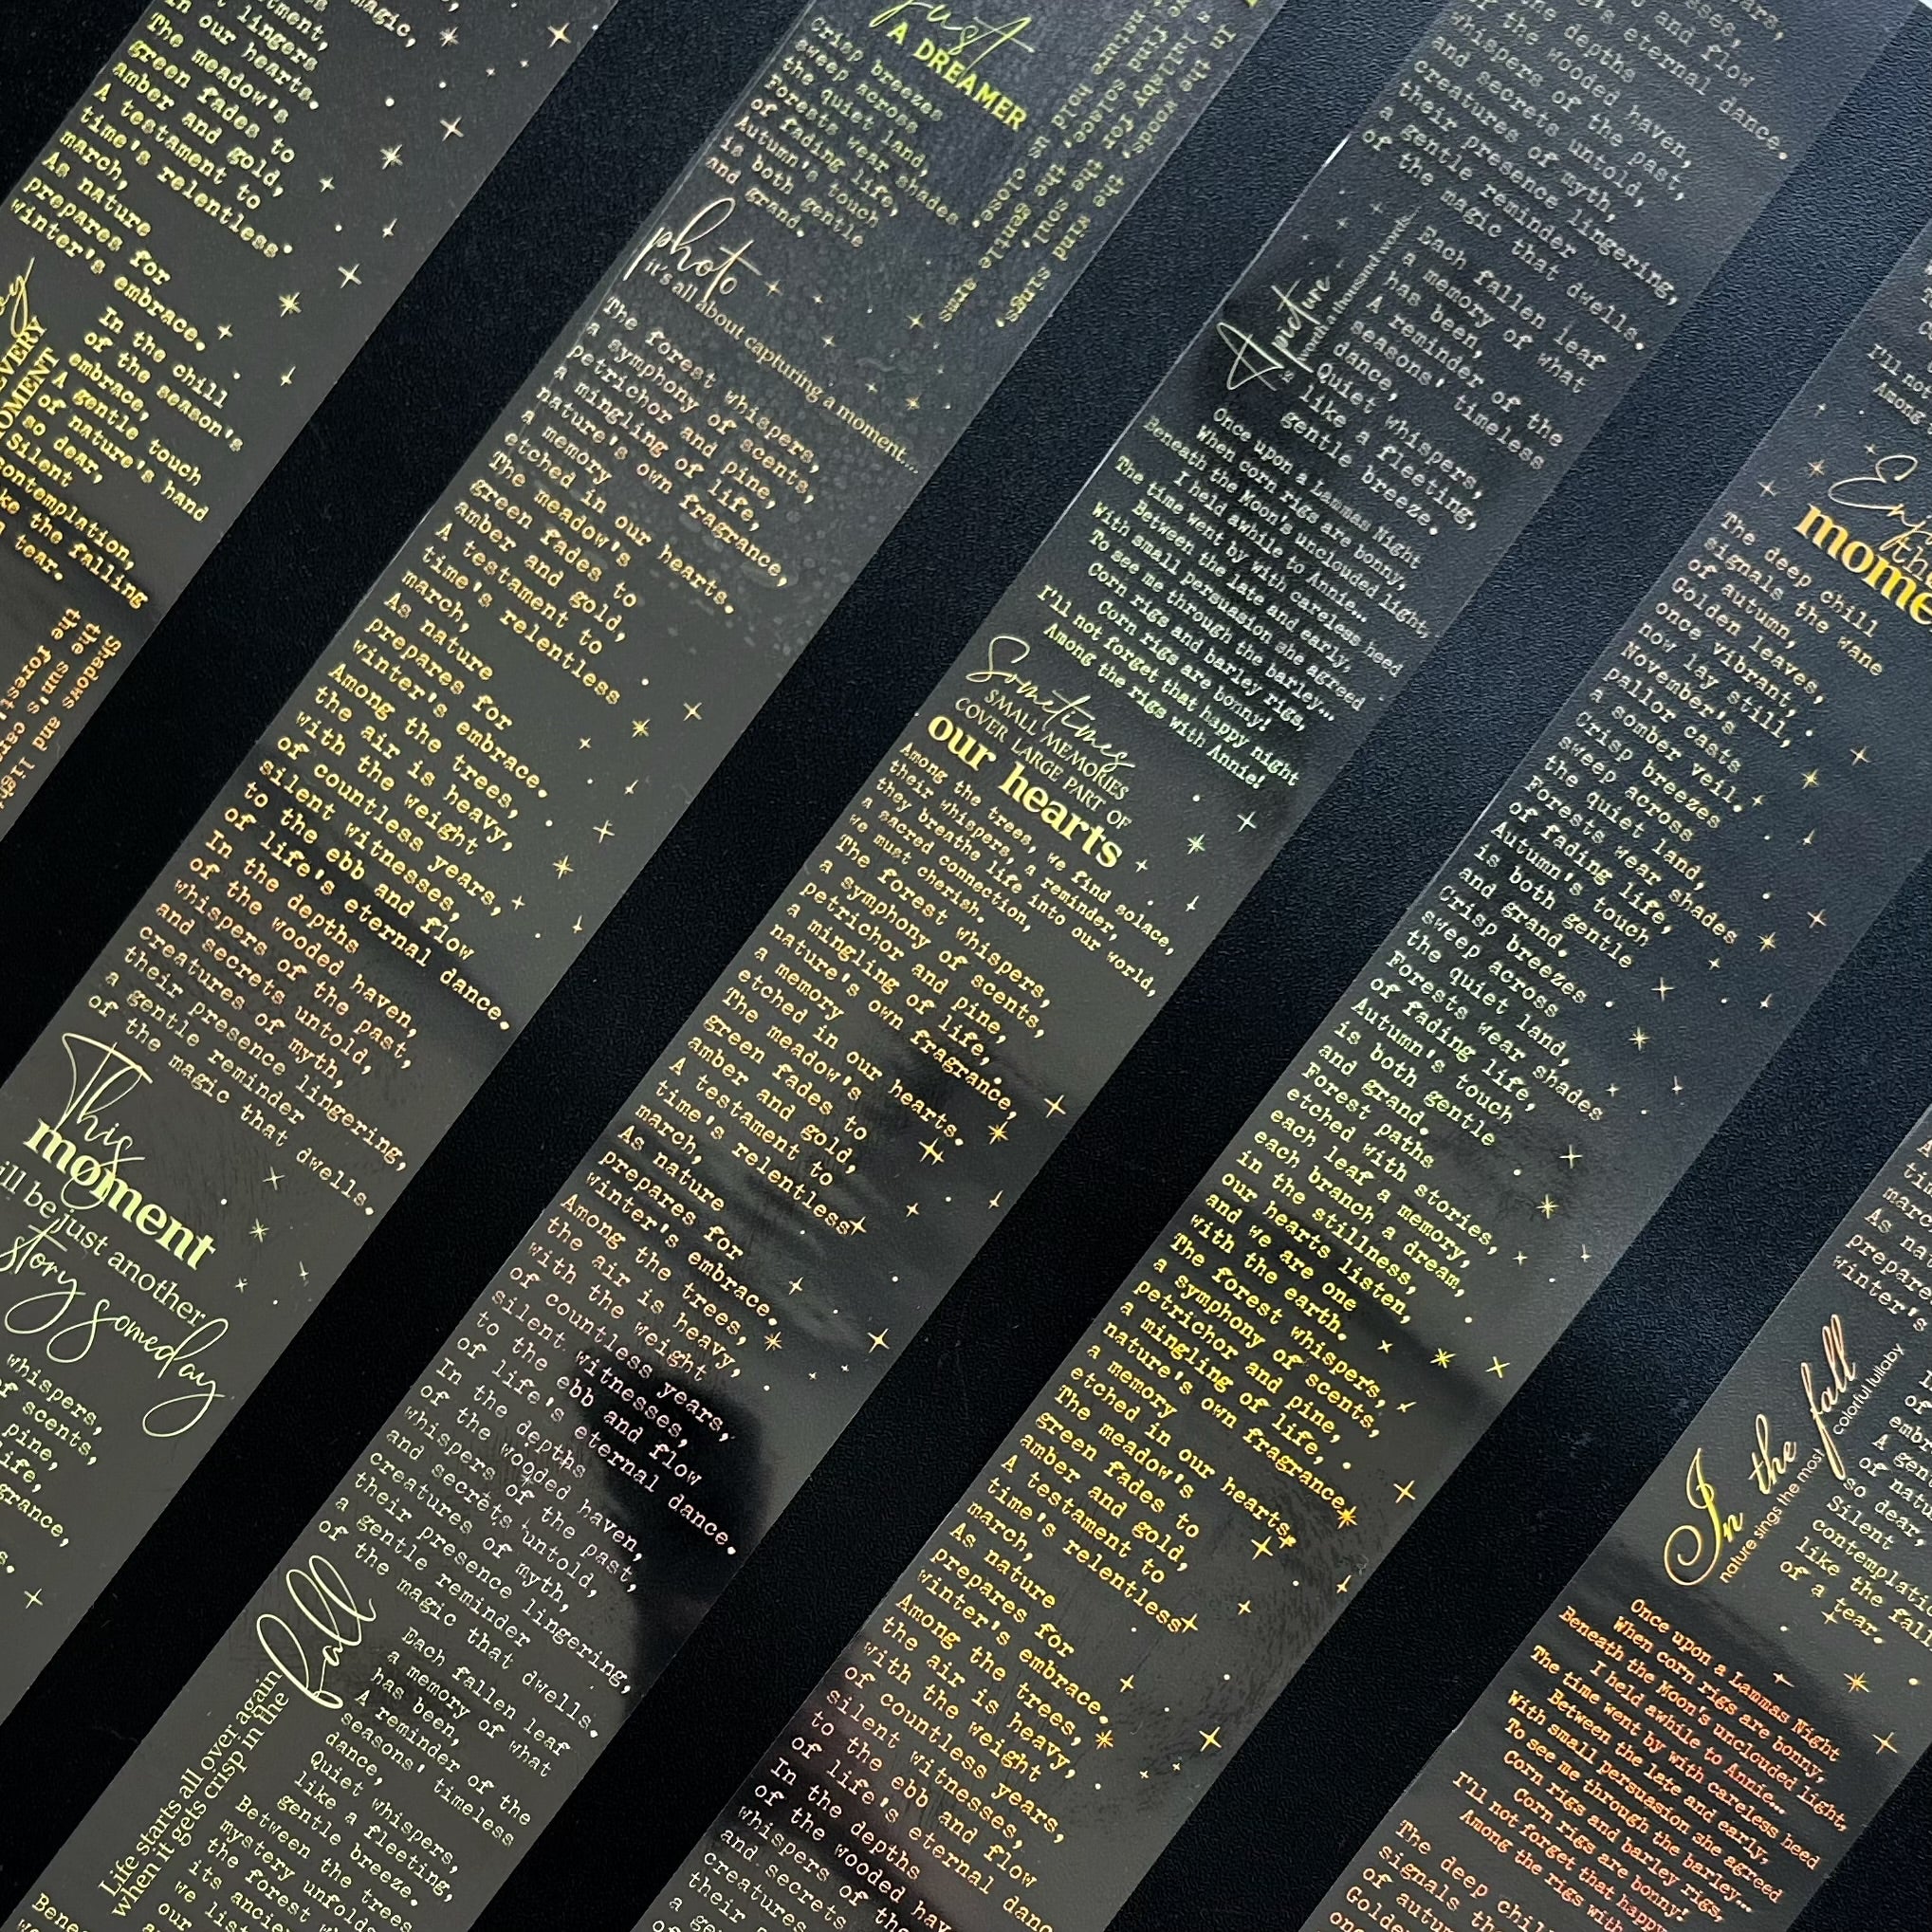 magic,
lingers
in our hearts.
The meadow's
green fades to
amber and gold,
A testament to
time's relentless
march,
As nature
prepares for
winter's embrace.
In the chill
of the season's
embrace,
A gentle touch
of nature's hand
so dear,
Silent
contemplation,
like the falling
a tear.
EVERY
MOMENT
Shadows and light
This
moment
ill be just another
story someday
whispers,
of scents,
pine,
life,
just
A DREAMER
Crisp breezes
sweep across
the quiet land,
Forests wear shades
of fading life,
Autumn's touch
is both gentle
and grand.
In the woods, the wind sings
a lullaby for the soul,
photo
it's all about capturing a moment...
The forest whispers,
a symphony of scents,
petrichor and pine,
a mingling of life,
nature's own fragrance,
a memory
etched in our hearts.
The meadow's
green fades to
amber and gold,
A testament to
time's relentless
march,
As nature
prepares for
winter's embrace.
Among the trees,
the air is heavy,
with the weight
of countless years,
silent witnesses,
to the ebb and flow
of life's eternal dance.
In the depths
of the wooded haven,
whispers of the past,
and secrets untold,
creatures of myth,
their presence lingering,
a gentle reminder
of the magic that dwells.
and flow
eternal dance.
the depths
of the wooded haven,
whispers of the past,
and secrets untold,
creatures of myth,
their presence lingering,
a gentle reminder
of the magic that dwells.
A picture
worth a thousand words
Each fallen leaf
a memory of what
has been,
A reminder of the
seasons' timeless
dance,
Quiet whispers,
like a fleeting,
gentle breeze.
Once upon a Lammas Night
When corn rigs are bonny,
Beneath the Moon's unclouded light,
I held awhile to Annie...
The time went by with careless heed
Between the late and early,
With small persuasion she agreed
To see me through the barley...
Corn rigs and barley rigs,
Corn rigs are bonny!
I'll not forget that happy night
Among the rigs with Annie!
Sometimes
SMALL MEMORIES
COVER LARGE PART OF
our hearts
Among the trees, we find solace,
their whispers, a reminder,
they breathe life into our world,
a sacred connection,
we must cherish.
The forest whispers,
a symphony of scents,
petrichor and pine,
a mingling of life,
nature's own fragrance,
a memory
etched in our hearts.
The meadow's
green fades to
amber and gold,
A testament to
time's relentless
march,
As nature
prepares for
winter's embrace.
Among the trees,
the air is heavy,
with the weight
of countless years,
silent witnesses,
to the ebb and flow
of life's eternal dance.
In the depths
of the wooded haven,
whispers of the past,
and secrets untold,
creatures of myth,
their presence lingering,
a gentle reminder
of the magic that dwells.
Life starts all over again
when it gets crisp in the
fall
Each fallen leaf
a memory of what
has been,
A reminder of the
seasons' timeless
dance,
Quiet whispers,
like a fleeting,
gentle breeze.
Between the trees
mystery unfolds
the forest
its ancient
we
our
I'll not
Among
moment
The deep chill
signals the wane
of autumn,
Golden leaves,
once vibrant,
now lay still,
November's
pallor casts
a somber veil.
Crisp breezes
sweep across
the quiet land,
Forests wear shades
of fading life,
Autumn's touch
is both gentle
and grand.
Crisp breezes
sweep across
the quiet land,
Forests wear shades
of fading life,
Autumn's touch
is both gentle
and grand.
Forest paths
etched with stories,
each leaf a memory,
each branch a dream,
in the stillness,
our hearts listen,
and we are one
with the earth.
The forest whispers,
a symphony of scents,
petrichor and pine,
a mingling of life,
nature's own fragrance,
a memory
etched in our hearts.
The meadow's
green fades to
amber and gold,
A testament to
time's relentless
march,
As nature
prepares for
winter's embrace.
Among the trees,
the air is heavy,
with the weight
of countless years,
silent witnesses,
to the ebb and flow
of life's eternal
In the depths
of the wooded
whispers of the
and secrets
creatures
their
As
prepares
winter's
In the fall
nature sings the most colorful lullaby
of
A
of
so dear,
Silent
contemplation
like the
of a tear.
Once upon a Lammas Night
When corn rigs are bonny,
Beneath the Moon's unclouded light,
I held awhile to Annie...
The time went by with careless heed
Between the late and early,
With small persuasion she agreed
To see me through the barley...
Corn rigs and barley rigs,
Corn rigs are bonny!
I'll not forget that happy
Among the rigs with
The deep chill
signals the
of autumn